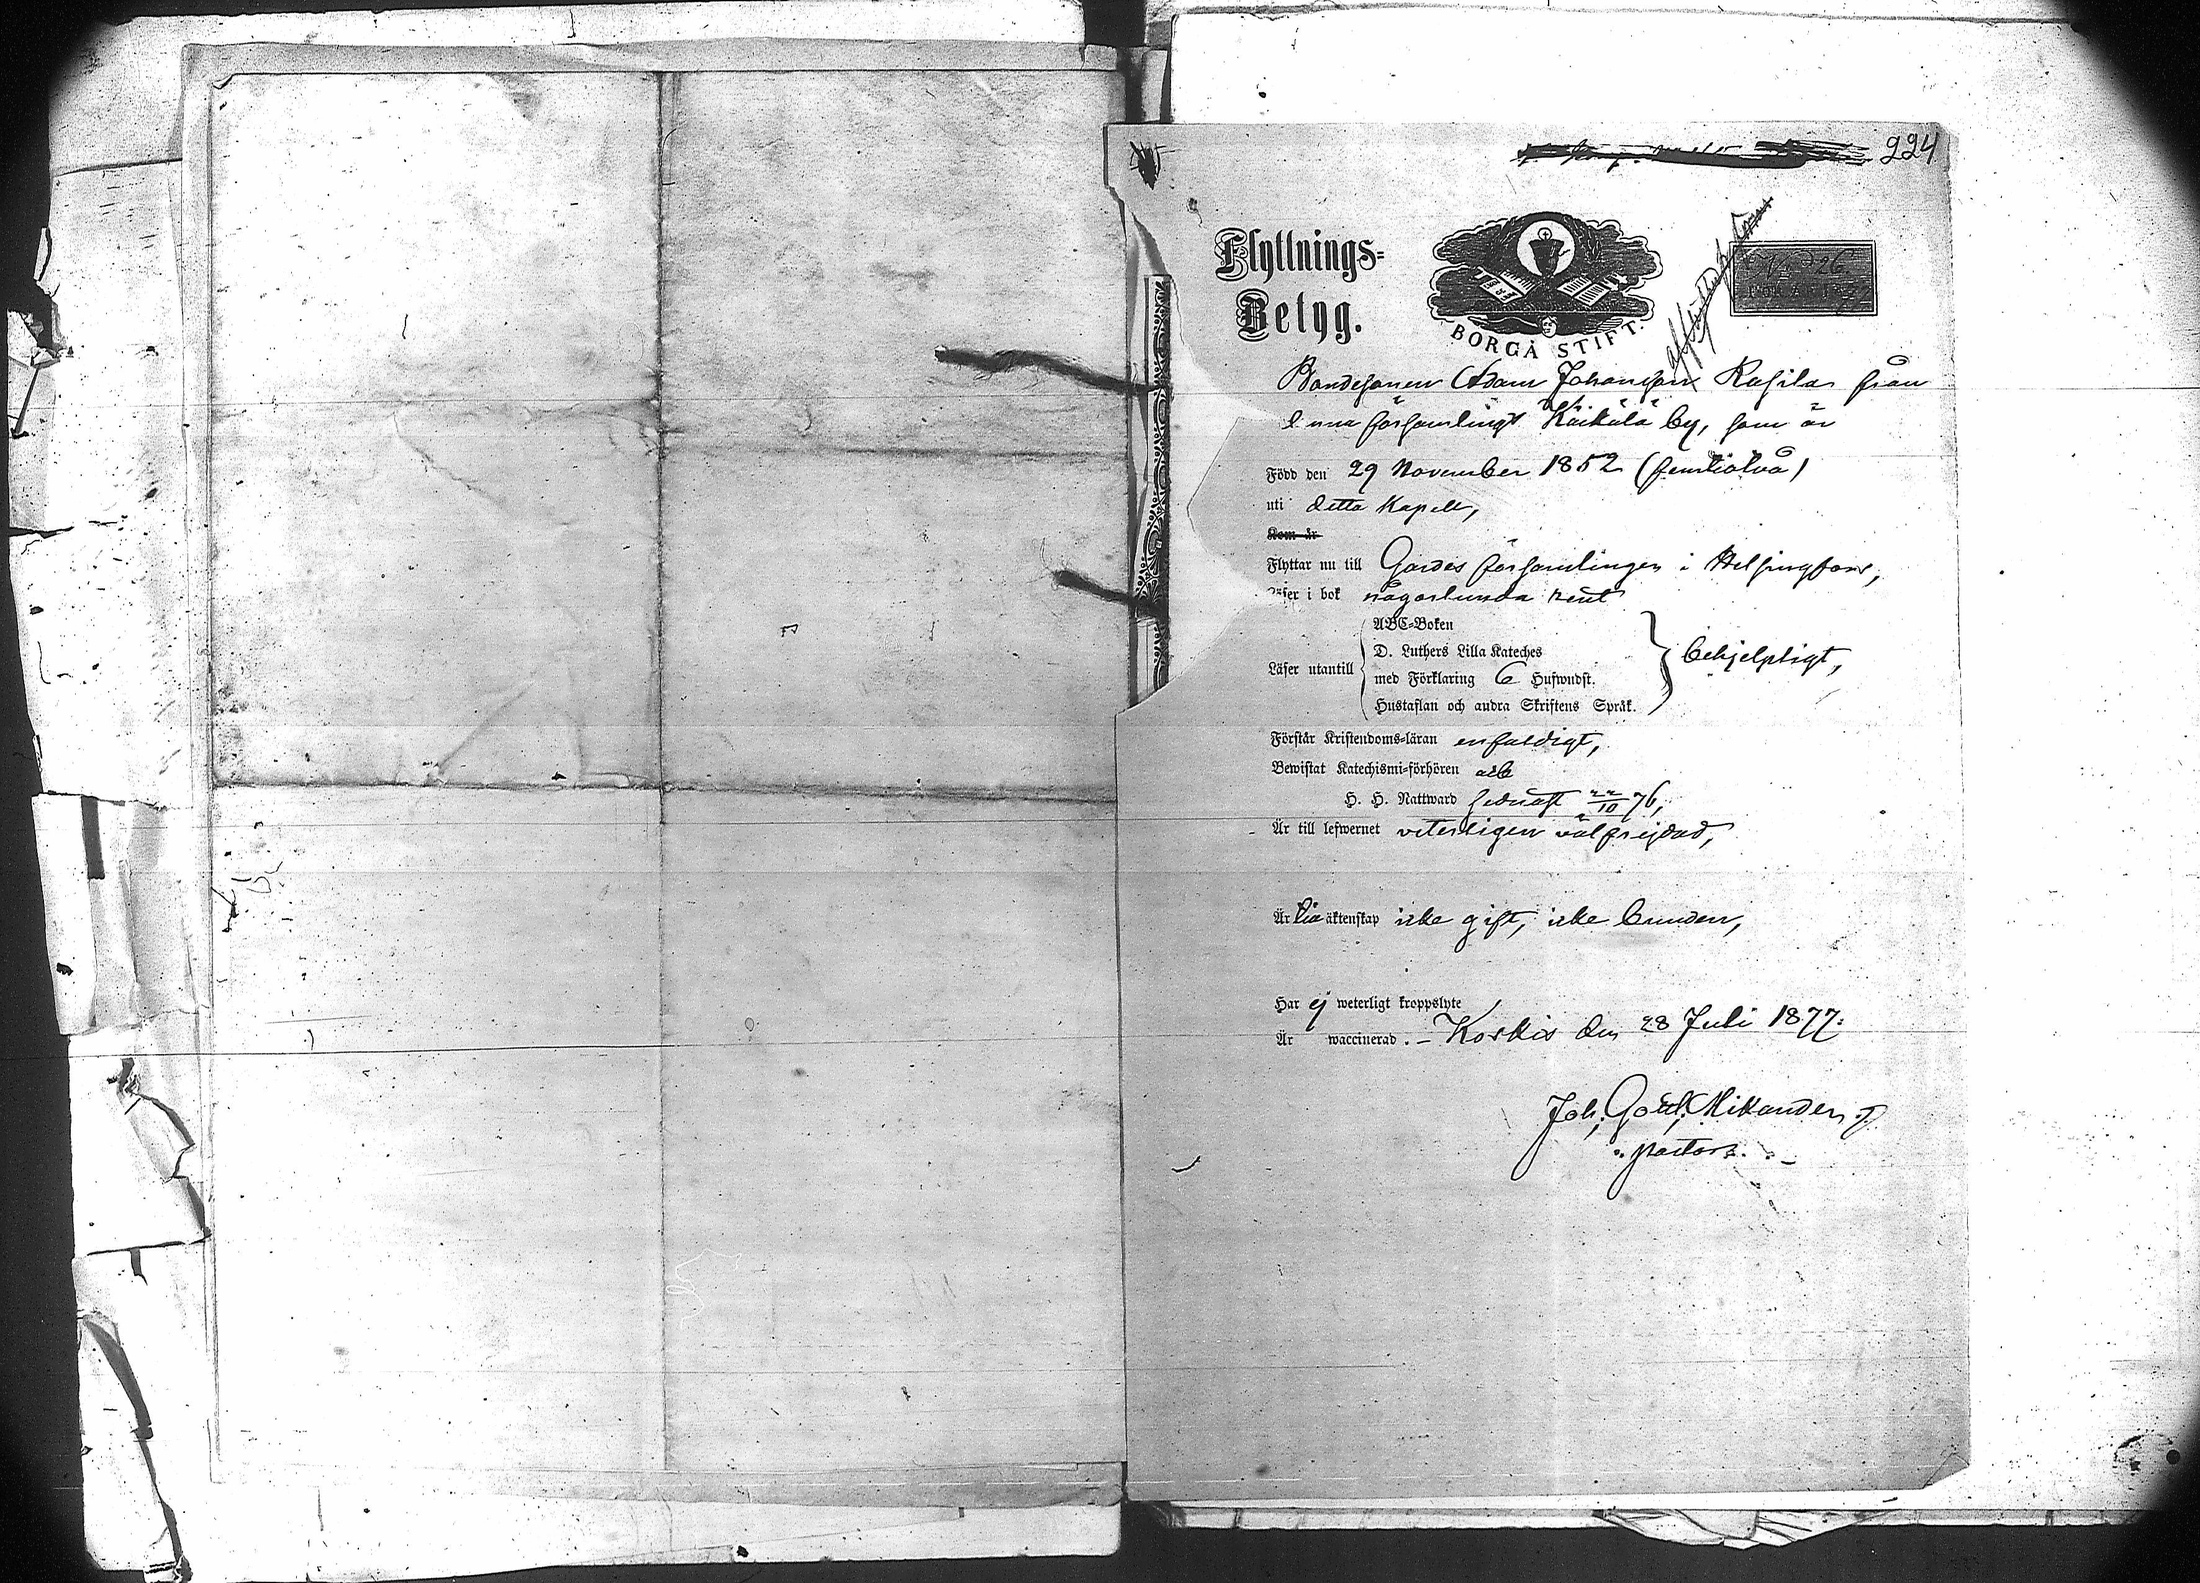 224
Flyttnings-
Betyg.
BORGÅ STIFT.
No 926
Bondesonen Adam Johansson Rasila från
denna församlings Käikälä by, som är
Född den 29 November 1852 (femtiotvå)
uti detta Kapell,
Kom år
Flyttar nu till Gardes församlingen i Helsingfors,
Läser i bok någorlunda rent
ABC-Boken
D. Luthers Lilla Kateches
Läser utantill med Förklaring 6 Hufwudst. behjelpligt,
Hustaflan och andra Skriftens Språk.
Förstår Kristendoms-läran enfaldigt,
Bewistat Katechismi-förhören
H. H. Nattward sednast 22/10 76,
Är till lefwernet veterligen välfrejdad,
Är till äktenskap icke gift, icke bunden,
Har ej weterligt kroppslyte
Är waccinerad. – Koskis den 28 Juli 1877.
Joh. Gottl. Mikander
pastor.